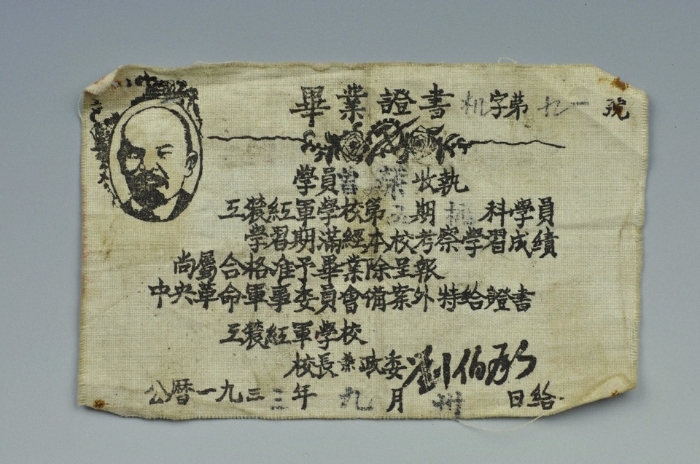 畢業證書 机字第九一號
學員曾 葉收執
工農紅軍學校第 期 机科學員
學習期滿經本校考察學習成績
尚屬合格准予畢業除呈報
中央革命軍事委員會備案外特給證書
工農紅軍學校
校長兼政委劉伯承
公曆一九三三年九月卅日給